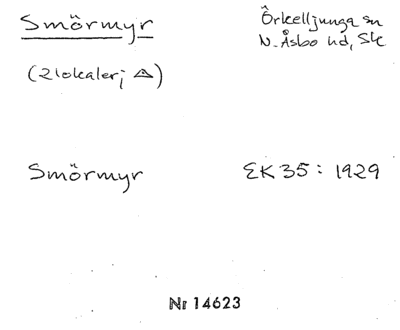 Smörmyr
Örkelljunga sn
N. Åsbo hd, Sk
(2 lokaler; △)
Smörmyr
EK 35 : 1929
Nr 14623